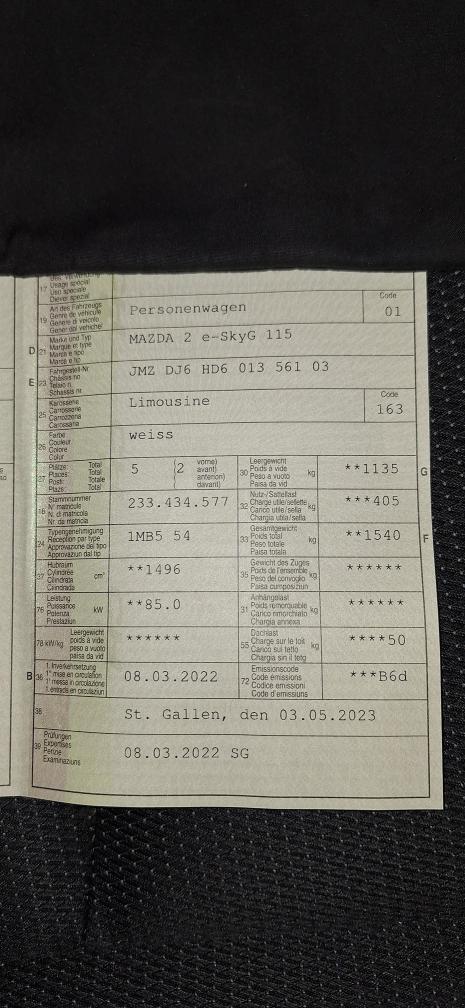 17 Usage spécial
Uso speciale
Diever spezial
19 Art des Fahrzeugs
Genre de véhicule
Genere di veicolo
Gener dal vehichel
Personenwagen
Code
01
D 21 Marke und Typ
Marque et type
Marca e tipo
Marca e tip
MAZDA 2 e-SkyG 115
E 23 Fahrgestell-Nr
Châssis no
Telaio n.
Schassis nr
JMZ DJ6 HD6 013 561 03
25 Karosserie
Carrosserie
Carrozzeria
Carossaria
Limousine
Code
163
26 Farbe
Couleur
Colore
Colur
weiss
27 Plätze: Total
Places: Total
Posti: Totale
Plazs: Total
5 (2 vorne)
avant)
anteriori)
davant)
30 Leergewicht
Poids à vide
Peso a vuoto
Paisa da vid
kg
**1135
G
18 Stammnummer
N° matricule
N. di matricola
Nr. da matricla
233.434.577
32 Nutz-/Sattellast
Charge utile/sellette
Carico utile/sella
Chargia utila/sella
kg
***405
24 Typengenehmigung
Réception par type
Approvazione del tipo
Approvaziun dal tip
1MB5 54
33 Gesamtgewicht
Poids total
Peso totale
Paisa totala
kg
**1540
F
37 Hubraum
Cylindrée
Cilindrata
Cilindrada
cm³
**1496
35 Gewicht des Zuges
Poids de l'ensemble
Peso del convoglio
Paisa cumposiziun
kg
******
76 Leistung
Puissance
Potenza
Prestaziun
kW
**85.0
31 Anhängelast
Poids remorquable
Carico rimorchiato
Chargia annexa
kg
******
78 kW/kg Leergewicht
poids à vide
peso a vuoto
paisa da vid
******
55 Dachlast
Charge sur le toit
Carico sul tetto
Chargia sin il tetg
kg
****50
B 36 1. Inverkehrsetzung
1re mise en circulation
1a messa in circolazione
1. entrada en circulaziun
08.03.2022
72 Emissionscode
Code émissions
Codice emissioni
Code d'emissiuns
***B6d
38 St. Gallen, den 03.05.2023
39 Prüfungen
Expertises
Perizie
Examinaziuns
08.03.2022 SG